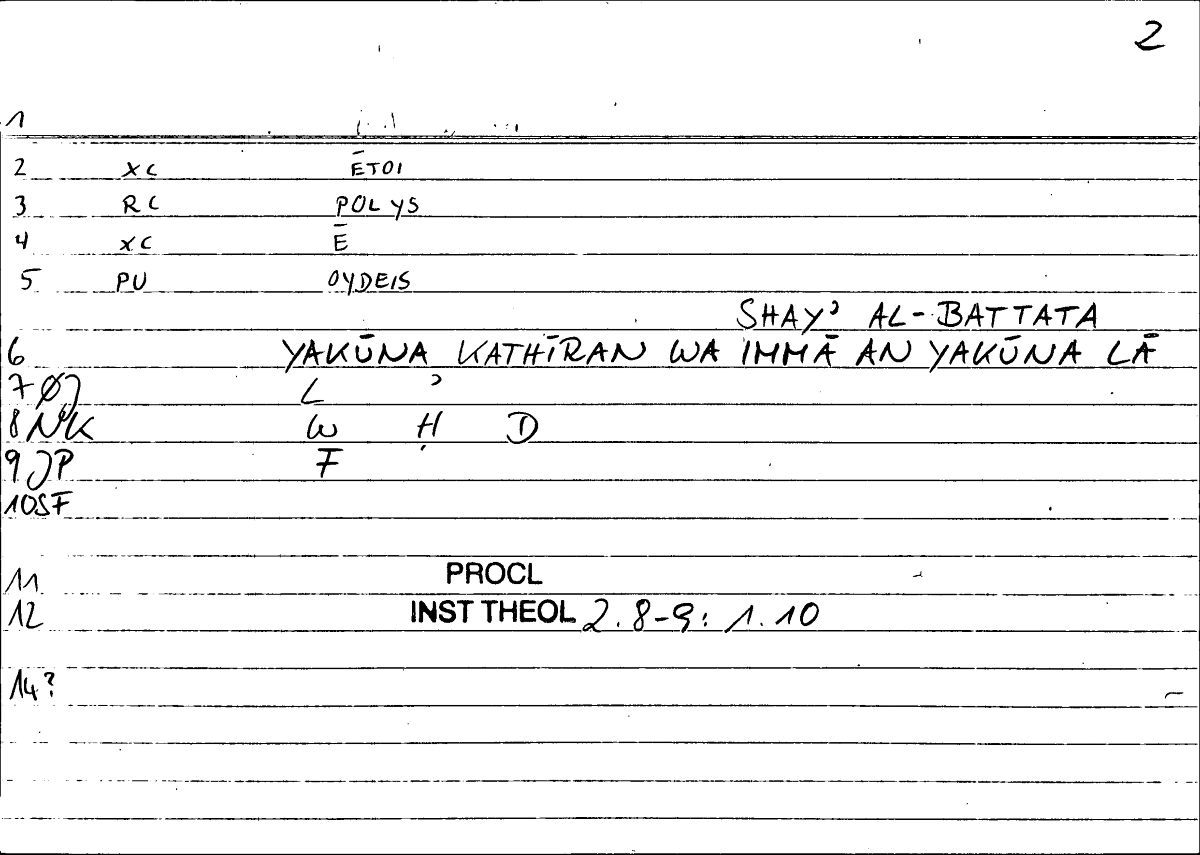 2
1
2 XC ĒTOI
3 RC POLYS
4 XC Ē
5 PU OYDEIS
SHAYʾ AL-BATTATA
6 YAKŪNA KATHĪRAN WA IMMĀ AN YAKŪNA LĀ
7 ØJ L ʾ
8 NK W Ḥ D
9 JP F
10 SF
11 PROCL
12 INST THEOL 2.8-9: 1.10
14?